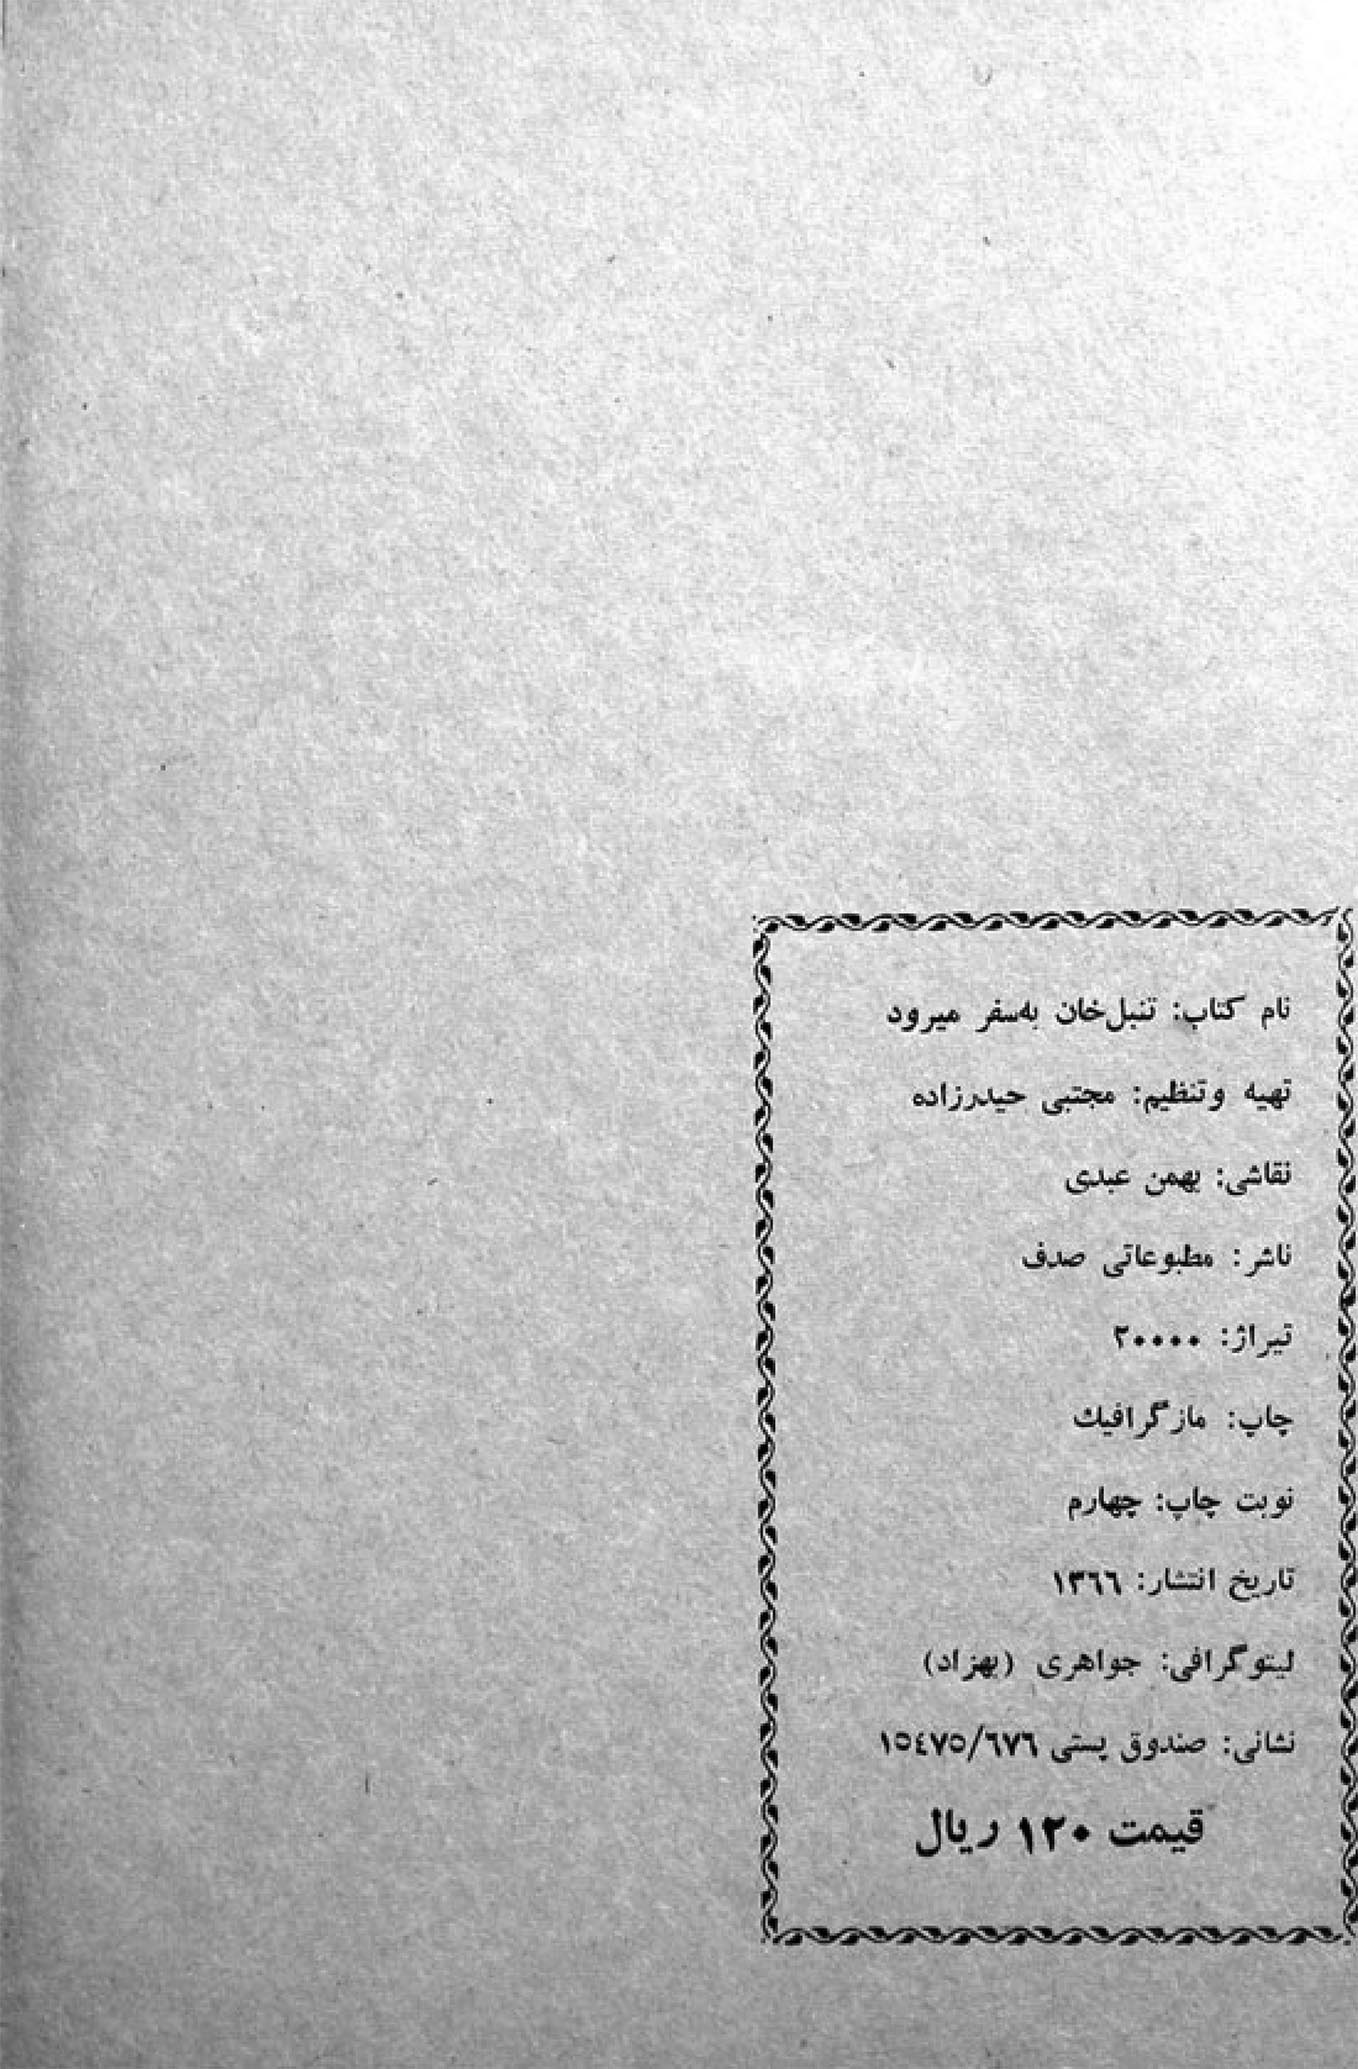 نام کتاب: تنبل‌خان به‌سفر میرود
تهیه وتنظیم: مجتبی حیدرزاده
نقاشی: بهمن عبدی
ناشر: مطبوعاتی صدف
تیراژ: ۲۰۰۰۰
چاپ: مازگرافیك
نوبت چاپ: چهارم
تاریخ انتشار: ۱۳٦٦
لیتوگرافی: جواهری (بهزاد)
نشانی: صندوق پستی ۱٥٤٧٥/٦٧٦
قیمت ۱۲۰ ریال